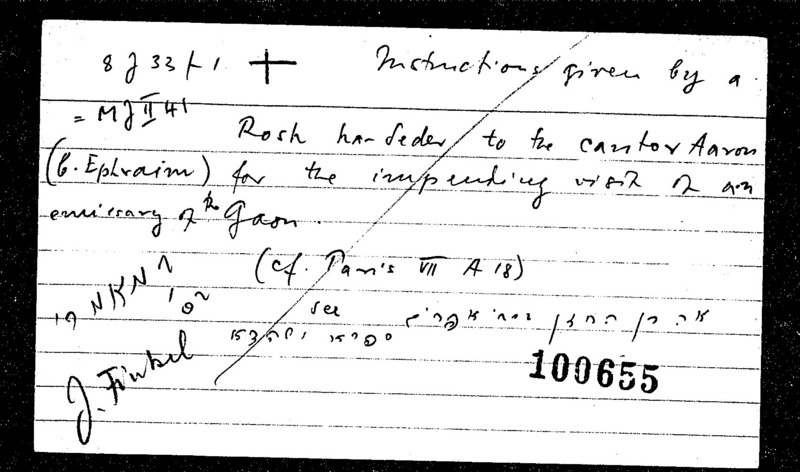 8 J 33 f 1 + Instructions given by a
= MJ II 41
Rosh ha-Seder to the cantor Aaron
(b. Ephraim) for the impending visit of an
emissary of the Gaon.
(cf. Paris VII A 18)
see
100655
J. Finkel